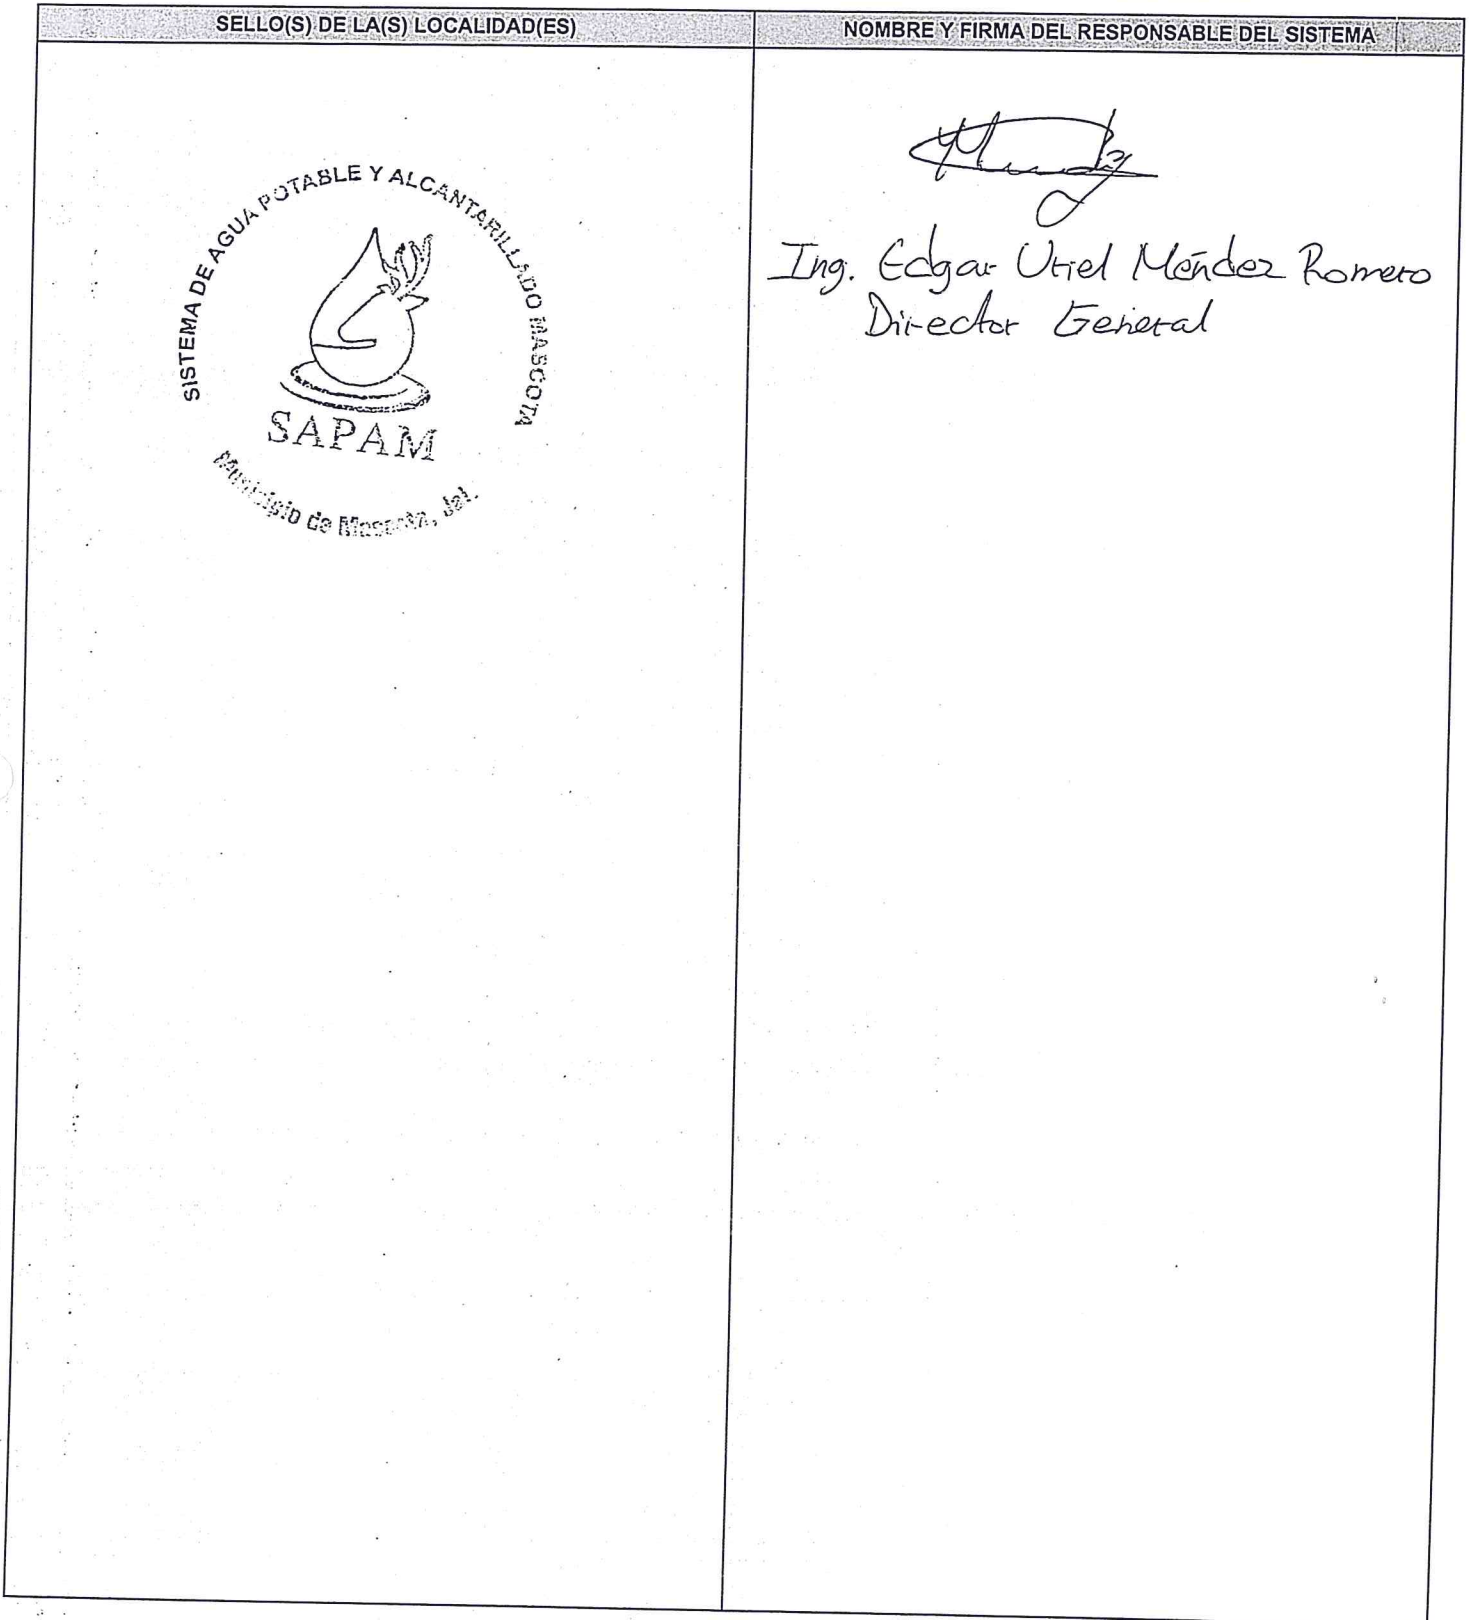 SELLO(S) DE LA(S) LOCALIDAD(ES)
NOMBRE Y FIRMA DEL RESPONSABLE DEL SISTEMA
SISTEMA DE AGUA POTABLE Y ALCANTARILLADO MASCOTA
SAPAM
Municipio de Mascota, Jal.
Ing. Edgar Uriel Méndez Romero
Director General